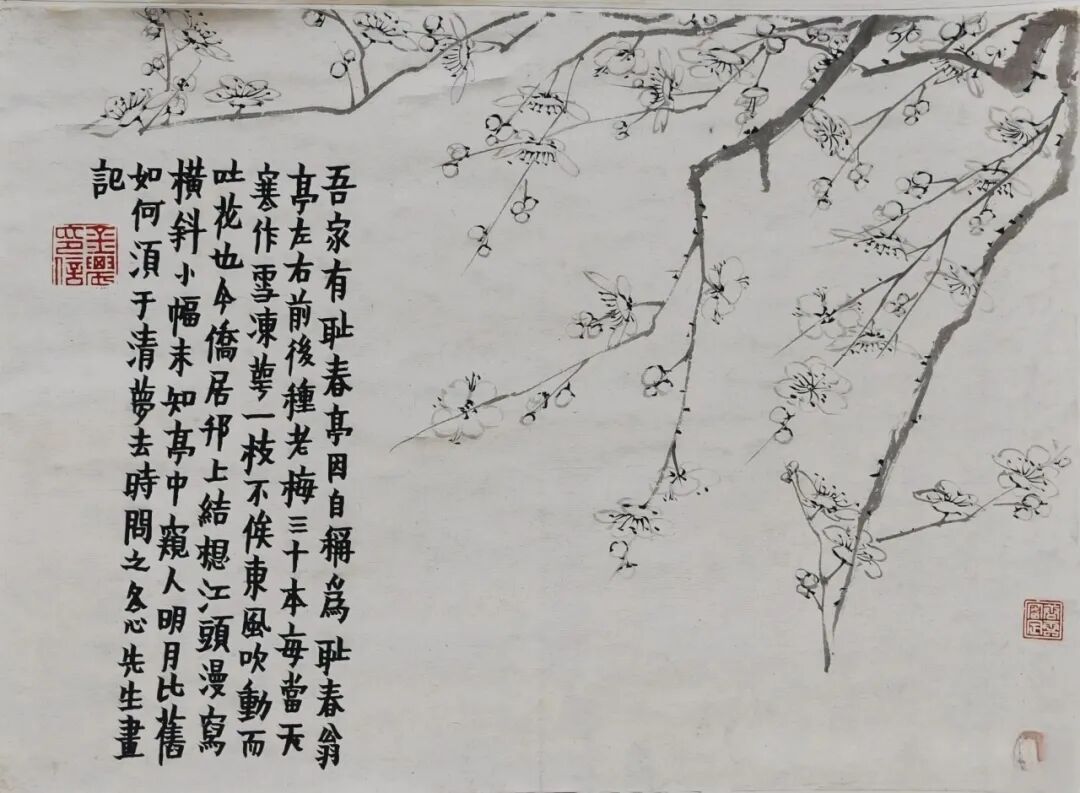 吾家有耻春亭因自稱爲耻春翁
亭左右前後種老梅三十本每當天
寒作雪凍萼一枝不俟東風吹動而
吐花也今僑居邗上結想江頭漫寫
橫斜小幅未知亭中窺人明月比舊
如何須于清夢去時問之冬心先生畫
記
金農印信